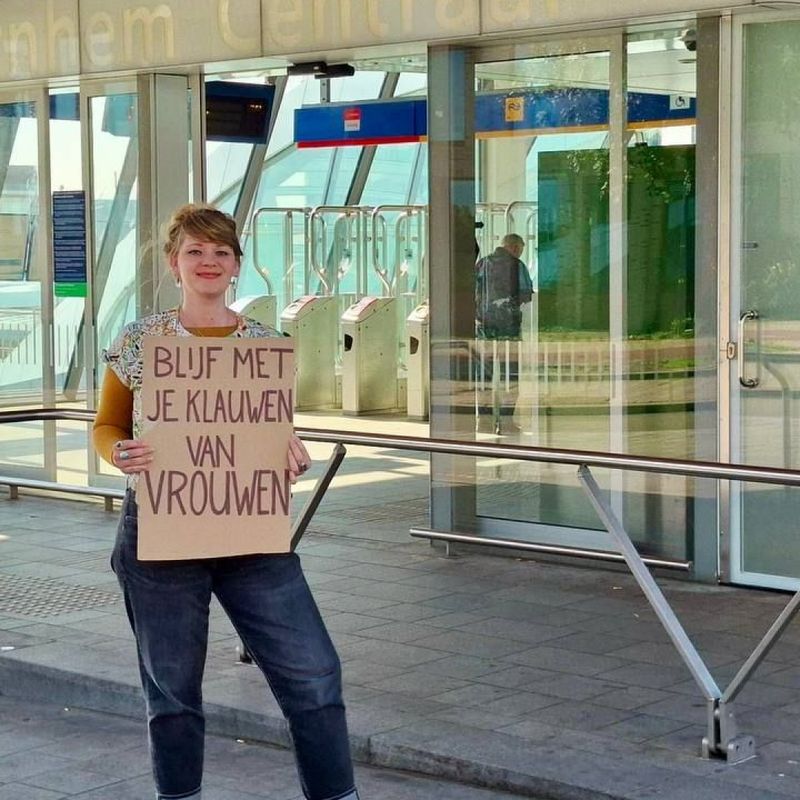 nhem Centraal
BLIJF MET
JE KLAUWEN
VAN
VROUWEN